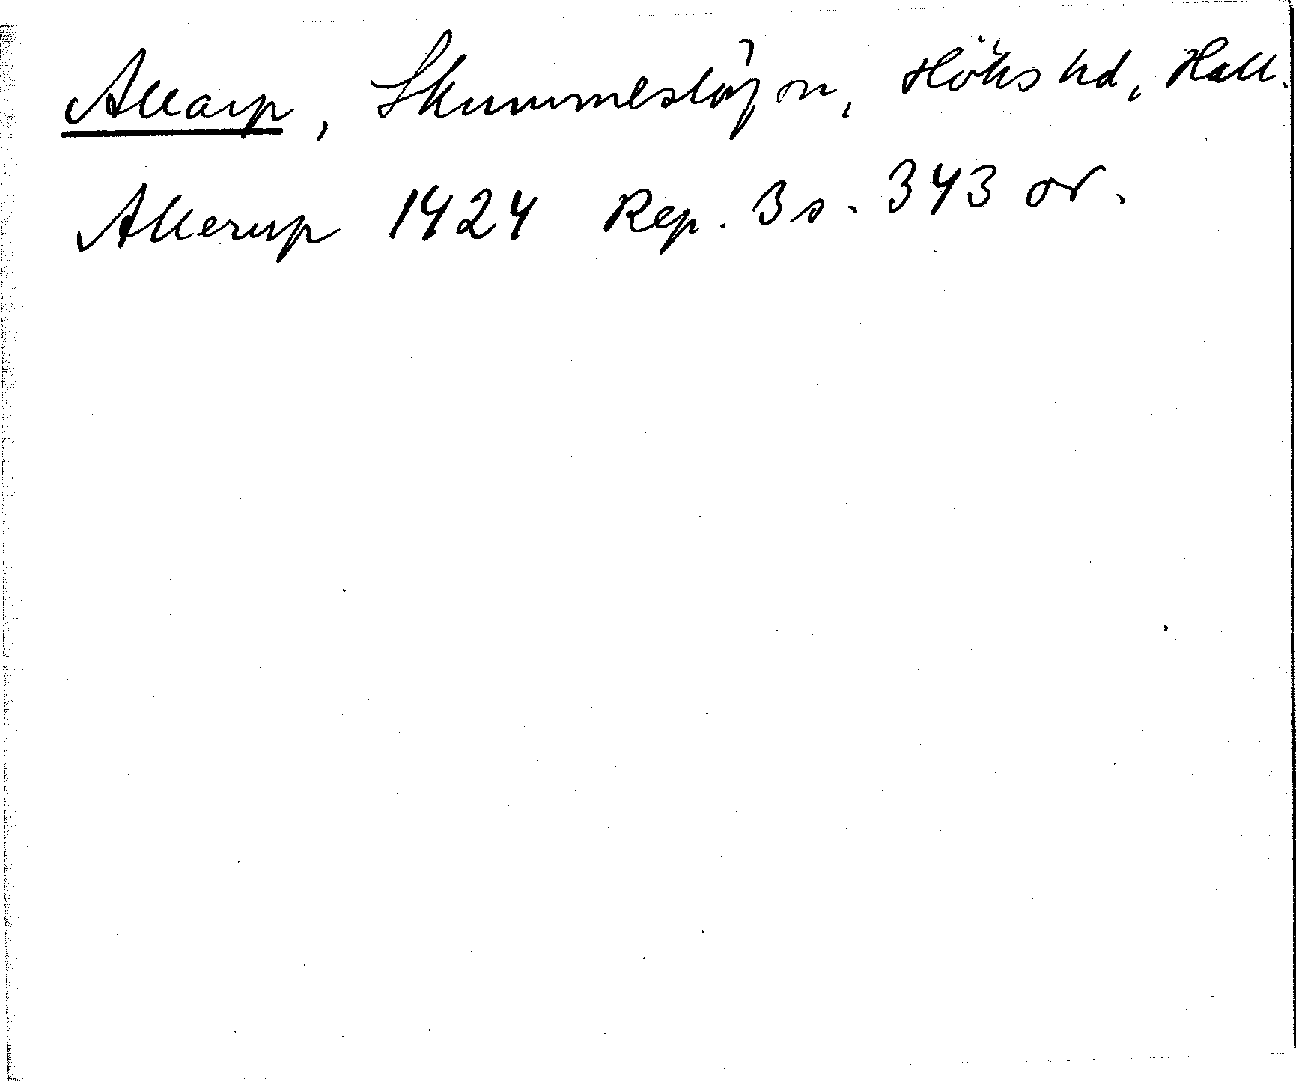 Allarp, Skummeslöf sn, Höks hd, Hall.
Allerup 1424 Rep. 3 s. 343 or.